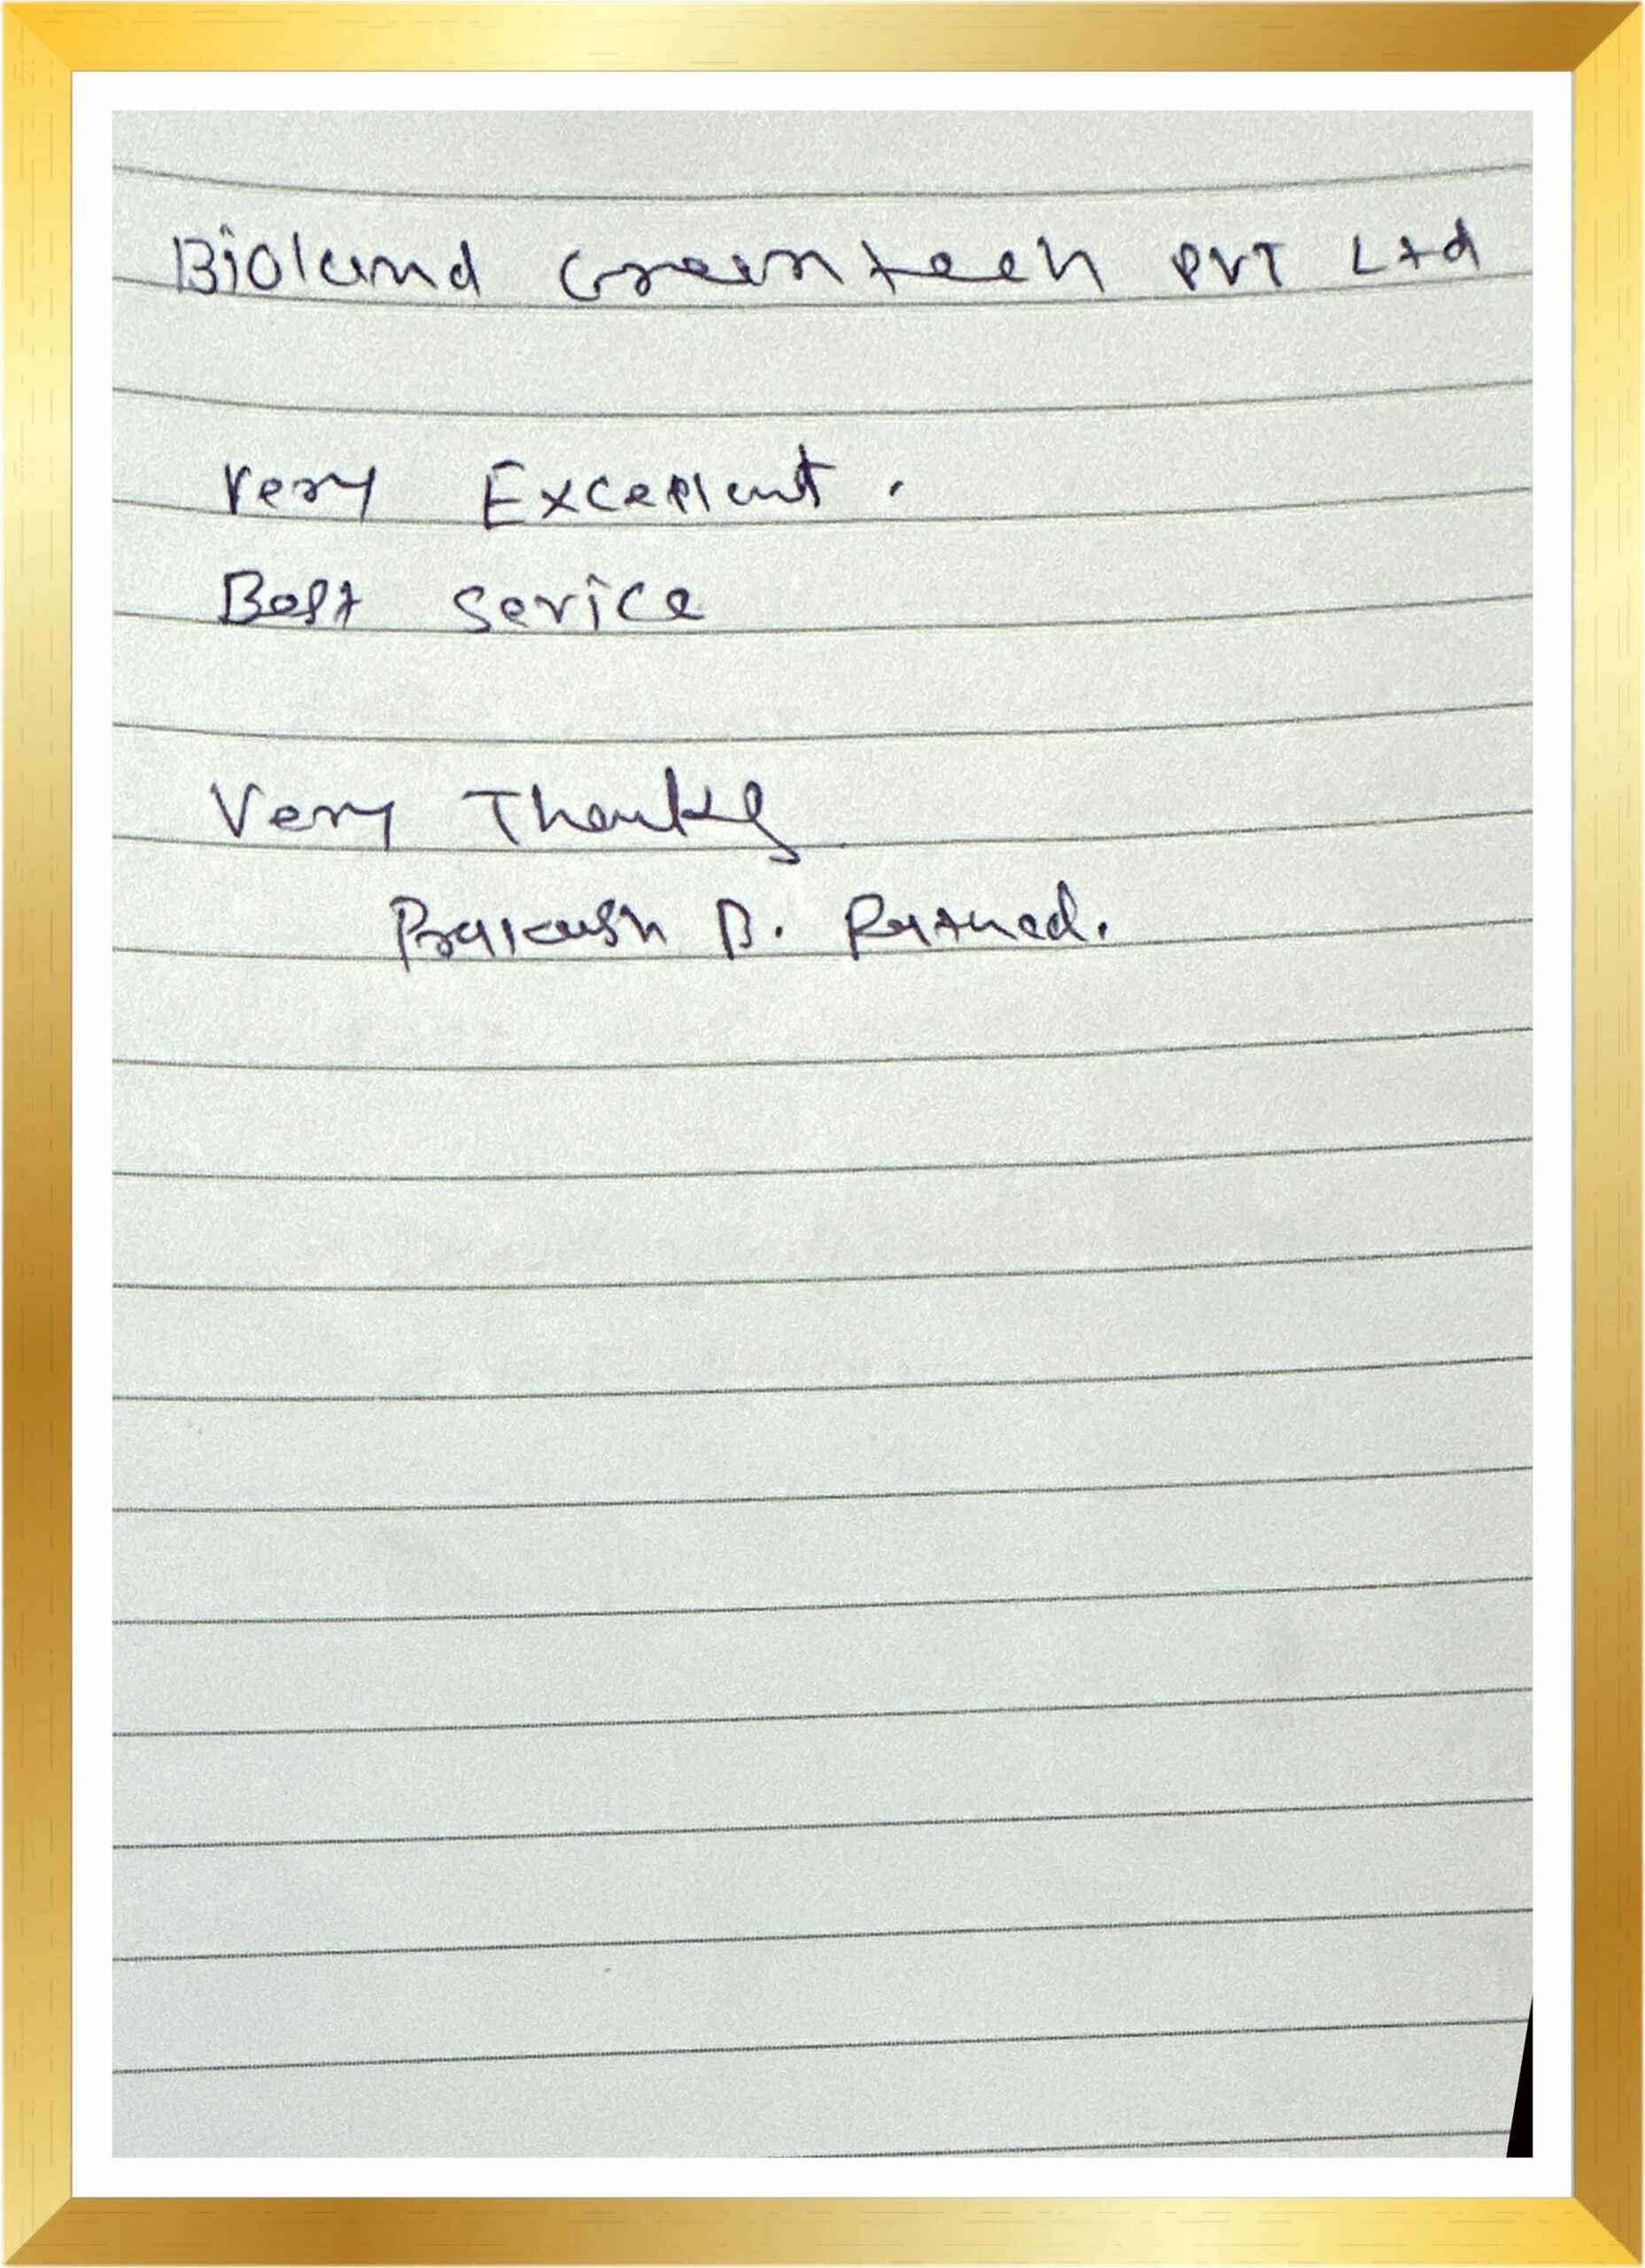 Bioland Greentech PVT Ltd
Very Excellent.
Best Service
Very Thanks
Prakash B.